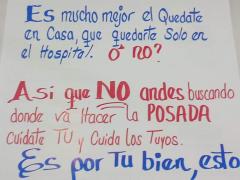 Es mucho mejor el Quedate
en Casa, que quedarte Solo en
el Hospital. O NO?
Así que NO andes buscando
donde va Hacer la POSADA
Cuidate TU y Cuida los Tuyos.
Es por Tu bien, esto